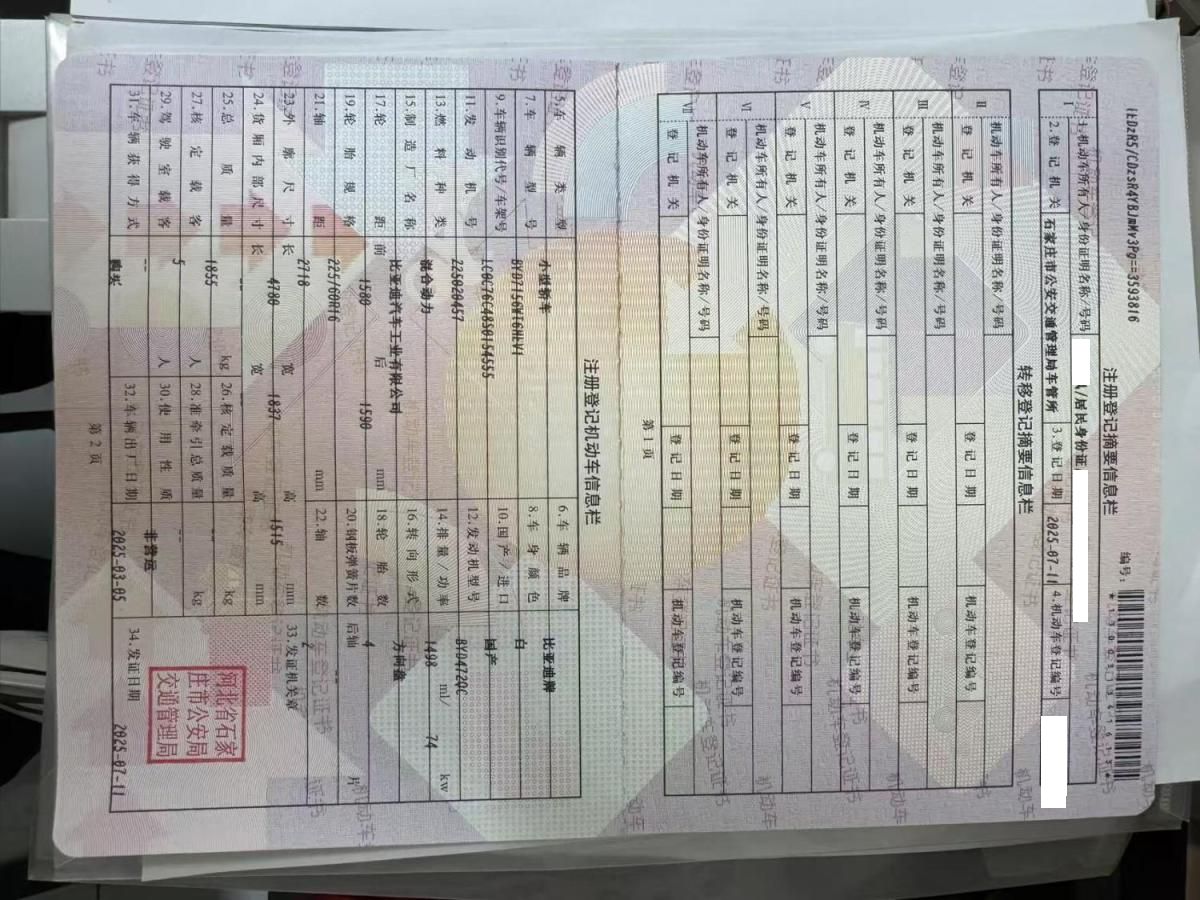 注册登记摘要信息栏
编号：
Ⅰ 1.机动车所有人/身份证明名称/号码 /居民身份证
2.登记机关 石家庄市公安交通管理局车管所 3.登记日期 2025-07-11 4.机动车登记编号
转移登记摘要信息栏
Ⅱ 机动车所有人/身份证明名称/号码
登记机关 登记日期 机动车登记编号
Ⅲ 机动车所有人/身份证明名称/号码
登记机关 登记日期 机动车登记编号
Ⅳ 机动车所有人/身份证明名称/号码
登记机关 登记日期 机动车登记编号
Ⅴ 机动车所有人/身份证明名称/号码
登记机关 登记日期 机动车登记编号
Ⅵ 机动车所有人/身份证明名称/号码
登记机关 登记日期 机动车登记编号
Ⅶ 机动车所有人/身份证明名称/号码
登记机关 登记日期 机动车登记编号
第1页
注册登记机动车信息栏
5.车辆类型 小型轿车 6.车辆品牌 比亚迪牌
7.车辆型号 BYD7150WT6HEV1 8.车身颜色 白
9.车辆识别代号/车架号 LC0C76C48S0154555 10.国产/进口 国产
11.发动机号 225020457 12.发动机型号 BYD472QC
13.燃料种类 混合动力 14.排量/功率 1498 ml/ 74 kw
15.制造厂名称 比亚迪汽车工业有限公司 16.转向形式 方向盘
17.轮距 前 1580 后 1590 mm 18.轮胎数 4
19.轮胎规格 225/60R16 20.钢板弹簧片数 后轴 -- 片
21.轴距 2718 mm 22.轴数 2
23.外廓尺寸 长 4780 宽 1837 高 1515 mm 33.发证机关章
24.货厢内部尺寸 长 -- 宽 高 mm
25.总质量 1855 kg 26.核定载质量 -- kg
27.核定载客 5 人 28.准牵引总质量 -- kg
29.驾驶室载客 -- 人 30.使用性质 非营运
31.车辆获得方式 购买 32.车辆出厂日期 2025-03-05 34.发证日期 2025-07-11
河北省石家
庄市公安局
交通管理局
第2页